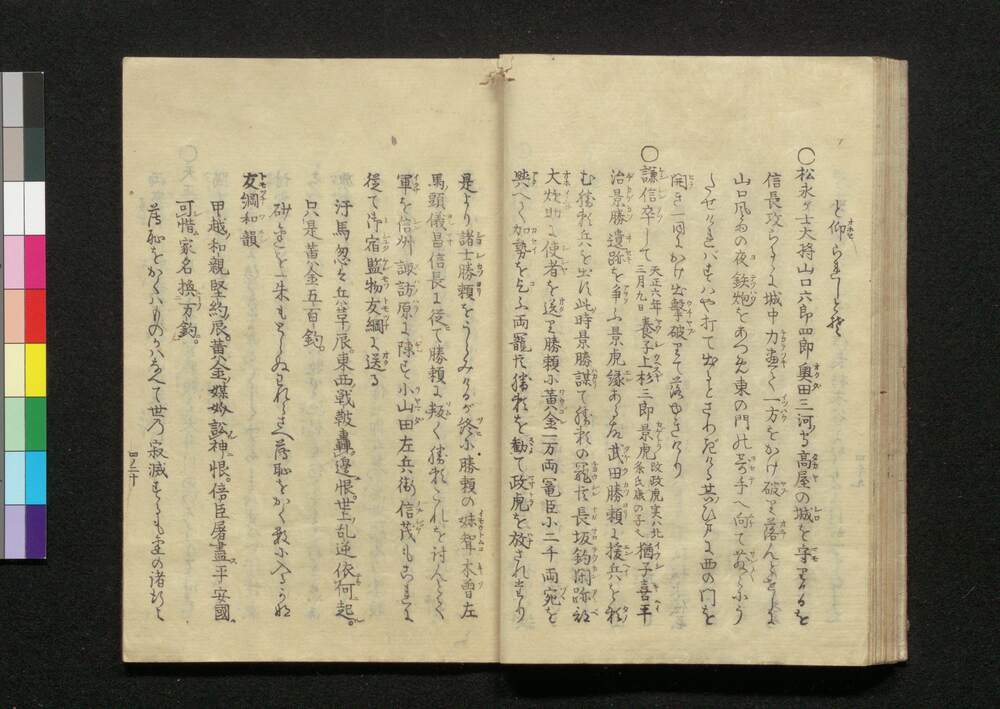 と仰られしとぞ
〇松永が士大将山口六郎四郎奥田三河守高屋の城を守りけるを
信長攻らるゝに城中力尽て一方をかけ破りて落んと
山口風雨の夜鉄炮をあつめ東の門の寄手へ向て
させければすはや打て出るとさわぎける其ひまに西の門を
開き一同にかけ出撃破りて落ゆきけり
〇謙信卒して天正六年三月九日養子上杉三郎景虎 猶子喜平
治景勝遺跡を争ふ景虎縁ある故武田勝頼に援兵を頼
む勝頼兵を出す此時景勝謀て勝頼の寵臣長坂釣閑跡部
大炊助に使者を送り勝頼に黄金一万両寵臣に二千両宛を
与へて加勢を乞ふ両寵臣勝頼を勧て政虎を放され
是より諸士勝頼をうらみけるが終に勝頼の妹聟木曽左
馬頭義昌信長に従て勝頼に叛く勝頼これを討んとて
軍を信州諏訪原に陳す小山田左兵衛信茂
従て御宿監物友綱に送る
汗馬忽々兵革辰。東西戦鼓轟邊垠。世上乱逆依何起。
只是黄金五百鈞。
砂金を一朱もとらぬ われらさへ薄恥をかく数に入かな
友綱和韻
甲越和親堅約辰。黄金媒妁訟神垠。倍臣屠尽平安国。
可惜家名換万鈞。
薄恥をかくはものかはなべて世の寂滅するも金の諸行よ
四ノ三十